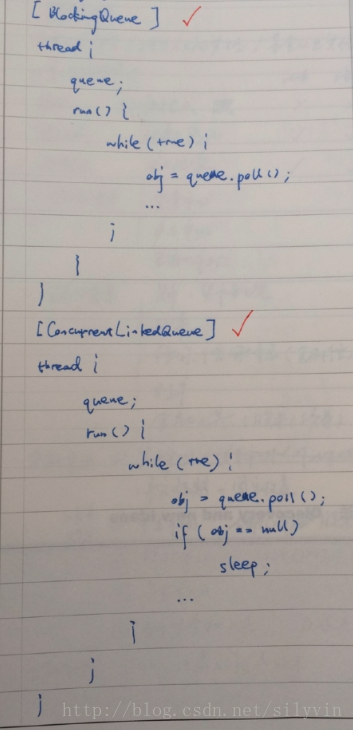 [ BlockingQueue ] ✓
thread {
queue;
run() {
while (true) {
obj = queue.poll();
...
}
}
}
[ConcurrentLinkedQueue] ✓
thread {
queue;
run() {
while (true) {
obj = queue.poll();
if (obj == null)
sleep;
...
}
}
}
http://blog.csdn.net/silyvin